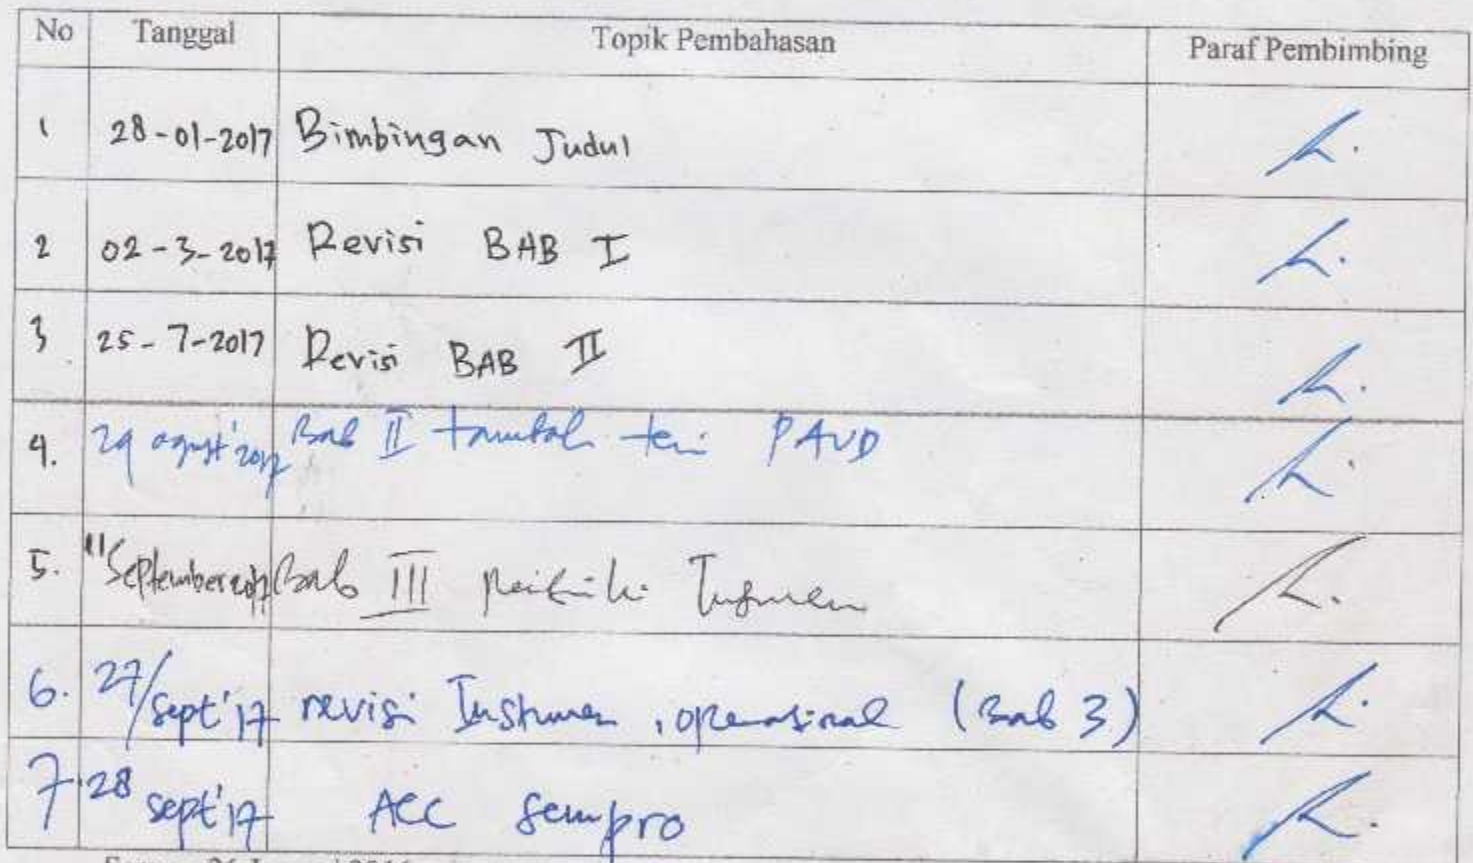 No Tanggal Topik Pembahasan Paraf Pembimbing
1 28-01-2017 Bimbingan Judul
2 02-3-2017 Revisi BAB I
3 25-7-2017 Revisi BAB II
4. 29 agust'2017 Bab II tambah teori PAUD
5. 11 September 2017 Bab III Instrumen
6. 27/sept'17 revisi Instrumen, operasional (Bab 3)
7. 28 sept'17 ACC sempro